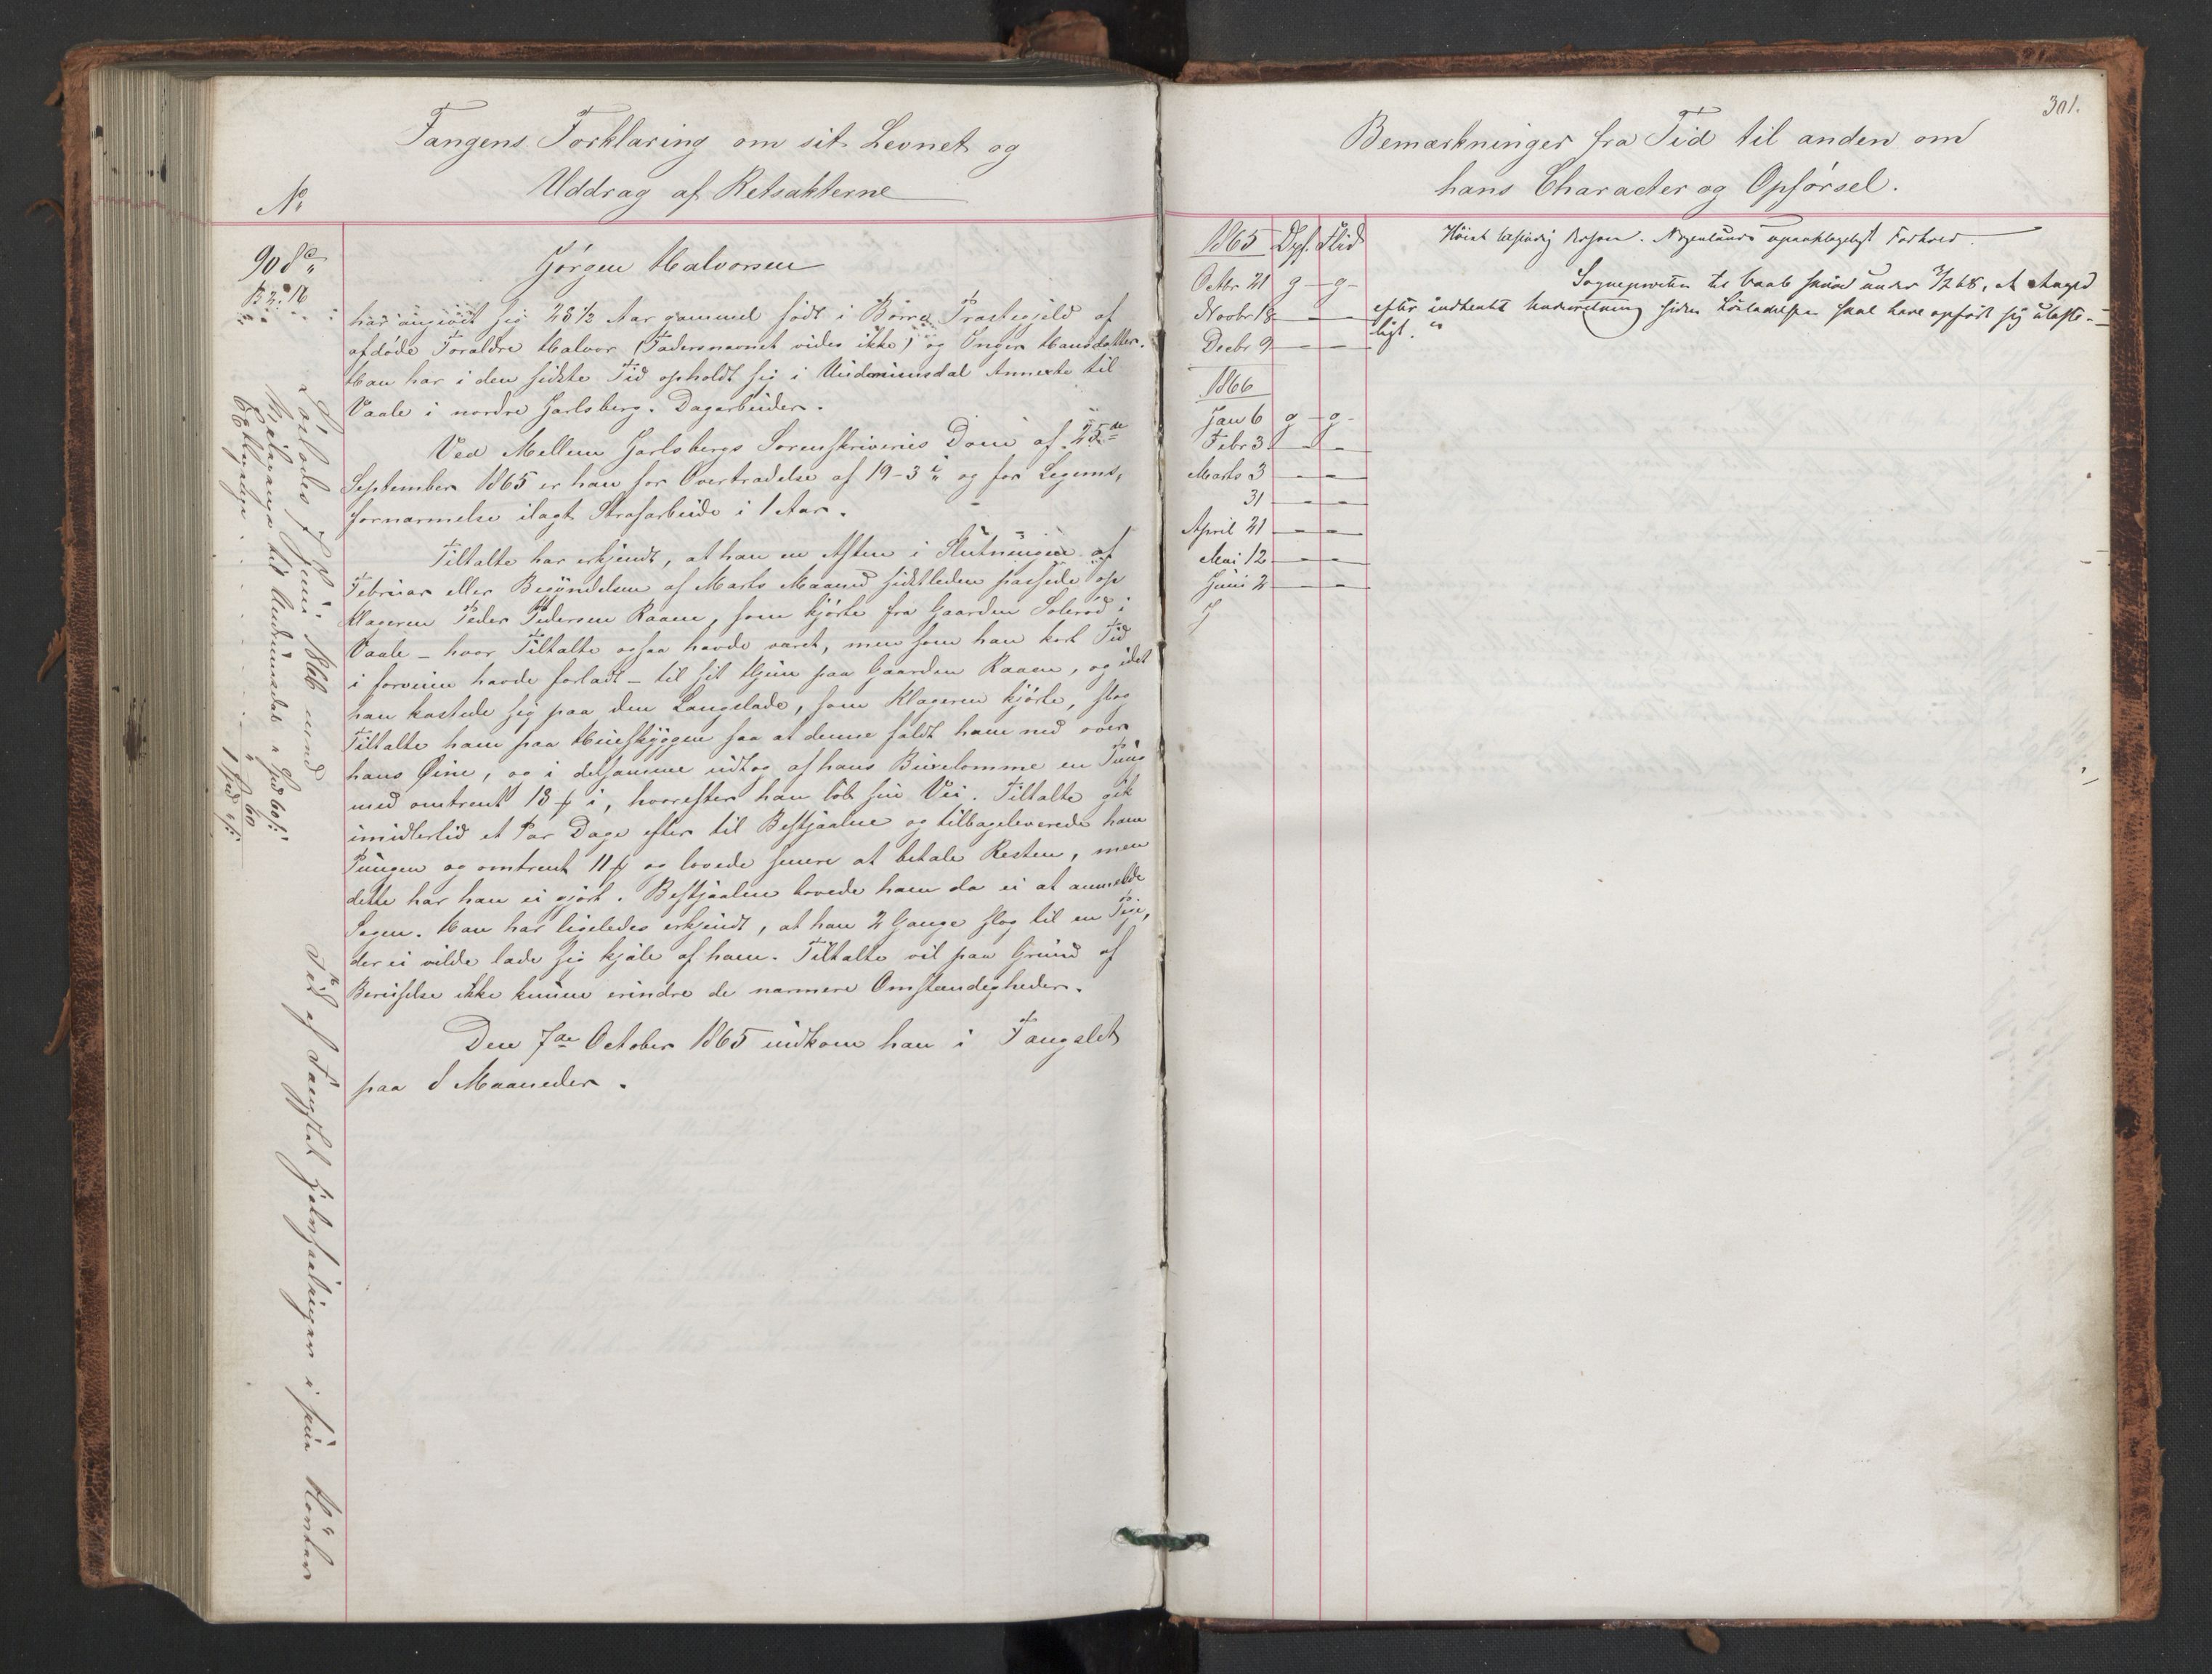 Fangens Forklaring om sit Levnet og
Uddrag af Retsakterne
No
908
B 2. 16
Jörgen Halvorsen
har angivet sig 28 1/2 Aar gammel født i Börre Præstegjeld af
afdöde Forældre Halvor (Fadersnavnet vides ikke) og Inger Hansdatter.
Han har i den sidste Tid opholdt sig i Undrumsdal Annexe til
Vaale i nordre Jarlsberg. Dagarbeider.
Ved Mellem Jarlsbergs Sorenskriveries Dom af 25de
September 1865 er han for Overtrædelse af 19-3 og for Legems,
fornærmelse ilagt Strafarbeide i 1 Aar.
Tiltalte har erkjendt, at han en Aften i Slutningen af
Februar eller Begyndelsen af Marts Maaned sidstleden passede op
Klageren Peder Pedersen Raaen, som kjörte fra Gaarden Solerød i
Vaale - hvor Tiltalte ogsaa havde været, men som han kort Tid
i forveien havde forladt - til sit Hjem paa Gaarden Raaen, og idet
han kastede sig paa den Langslæde, som Klageren kjörte, slog
Tiltalte ham paa Hueskyggen saa at denne faldt ham ned over
hans Øine, og i detsamme udtog af hans Buxelomme en Pung
med omtrent 13 i, hvorefter han löb sin Vei. Tiltalte gik
imidlertid et Par Dage efter til Bestjaalne og tilbageleverede ham
Pungen og omtrent 11 og lovede senere at betale Resten, men
dette har han ei gjort. Bestjaalne lovede ham da ei at anmelde
Sagen. Han har ligeledes erkjendt, at han 2 Gange slog til en Pige,
der ei vilde lade sig kjæle af ham. Tiltalte vil paa Grund af
Beruselse ikke kunne erindre de nærmere Omstændigheder.
Den 7de October 1865 indkom han i Fangslet
paa 8 Maaneder.
Löslodes 7 Juni 1866 med
til Undrumsdal
Tid af Fangslet
Bemærkninger fra Tid til anden om
hans Character og Opförsel.
301.
1865 Opf. Flid
Octbr 21 g - g -
Novbr 18 - -
Decbr 9 - -
1866
Jan 6 g - g -
Febr 3 - -
Marts 3 - -
31 - -
April 21 - -
Mai 12 - -
Juni 2 - -
Höist letsindig Person. Nogenlunde upaaklageligt Forhold.
Sognepresten til Vaale skrev under 3/2 68, at Angjld
efter indhentet Underretning siden Lösladelsen skal have opfört sig ulaste-
ligt.